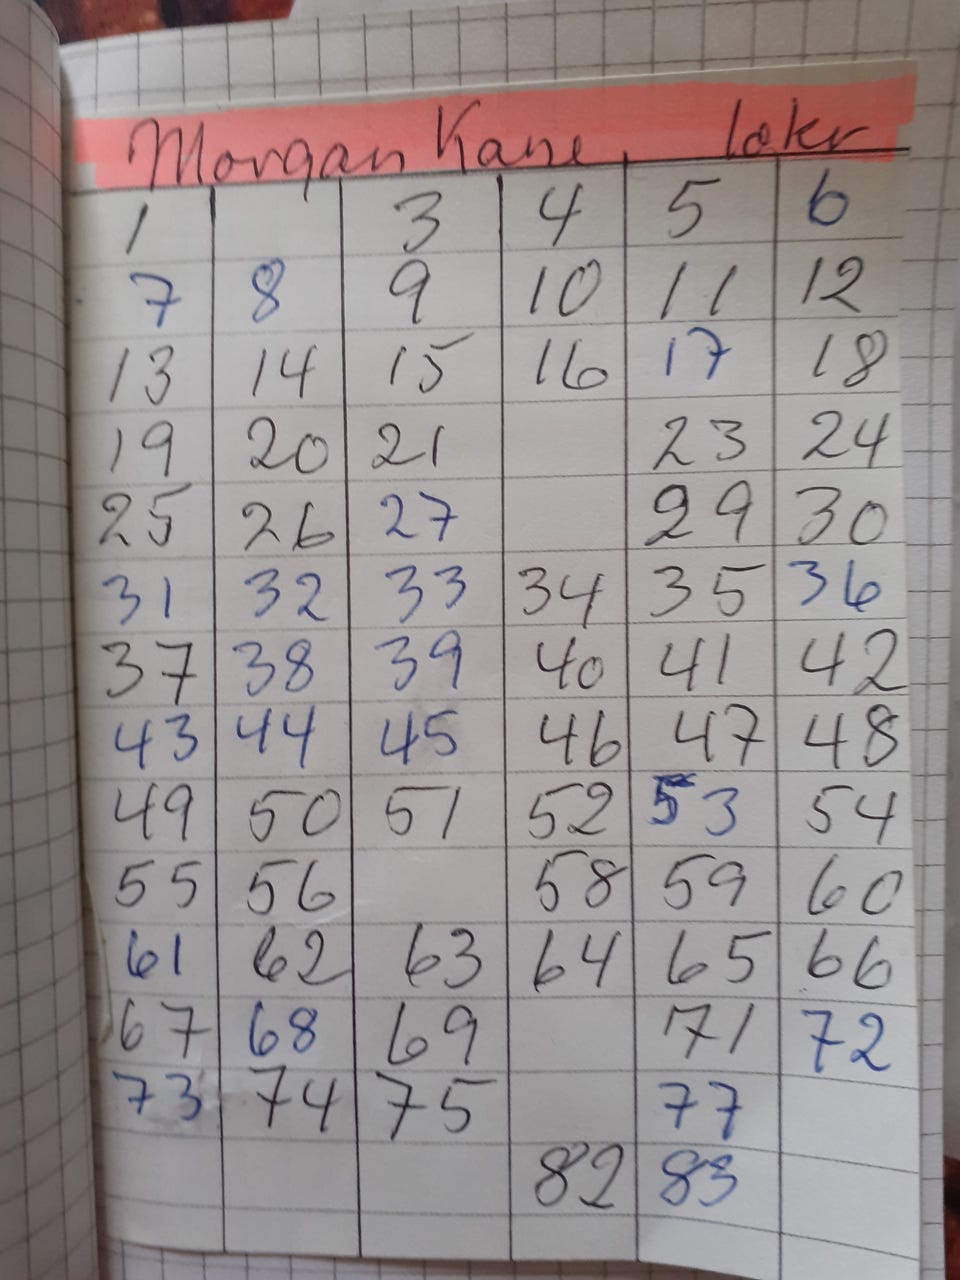 Morgan Kane løkr
1 3 4 5 6
7 8 9 10 11 12
13 14 15 16 17 18
19 20 21 23 24
25 26 27 29 30
31 32 33 34 35 36
37 38 39 40 41 42
43 44 45 46 47 48
49 50 51 52 53 54
55 56 58 59 60
61 62 63 64 65 66
67 68 69 71 72
73 74 75 77
82 83